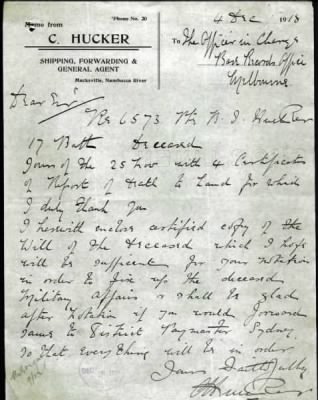 'Phone No. 20
Memo from
4 Dec 1918
C. HUCKER
To The Officer in Charge
SHIPPING, FORWARDING &
GENERAL AGENT
Base Records Office
Macksville, Nambucca River
Melbourne
Dear Sir
Re 6573 Pte Hucker
17 Batt Deceased
Yours of the 25 Nov with 4 Certificates
of Report of Death to hand for which
I duly thank you
I herewith enclose certified copy of the
Will of the Deceased which I hope
will be sufficient for your notation
in order to fix up the deceased
Military affairs & shall be glad
after notation if you would forward
same to District Paymaster Sydney
so that everything will be in order
Yours Faithfully
Hucker